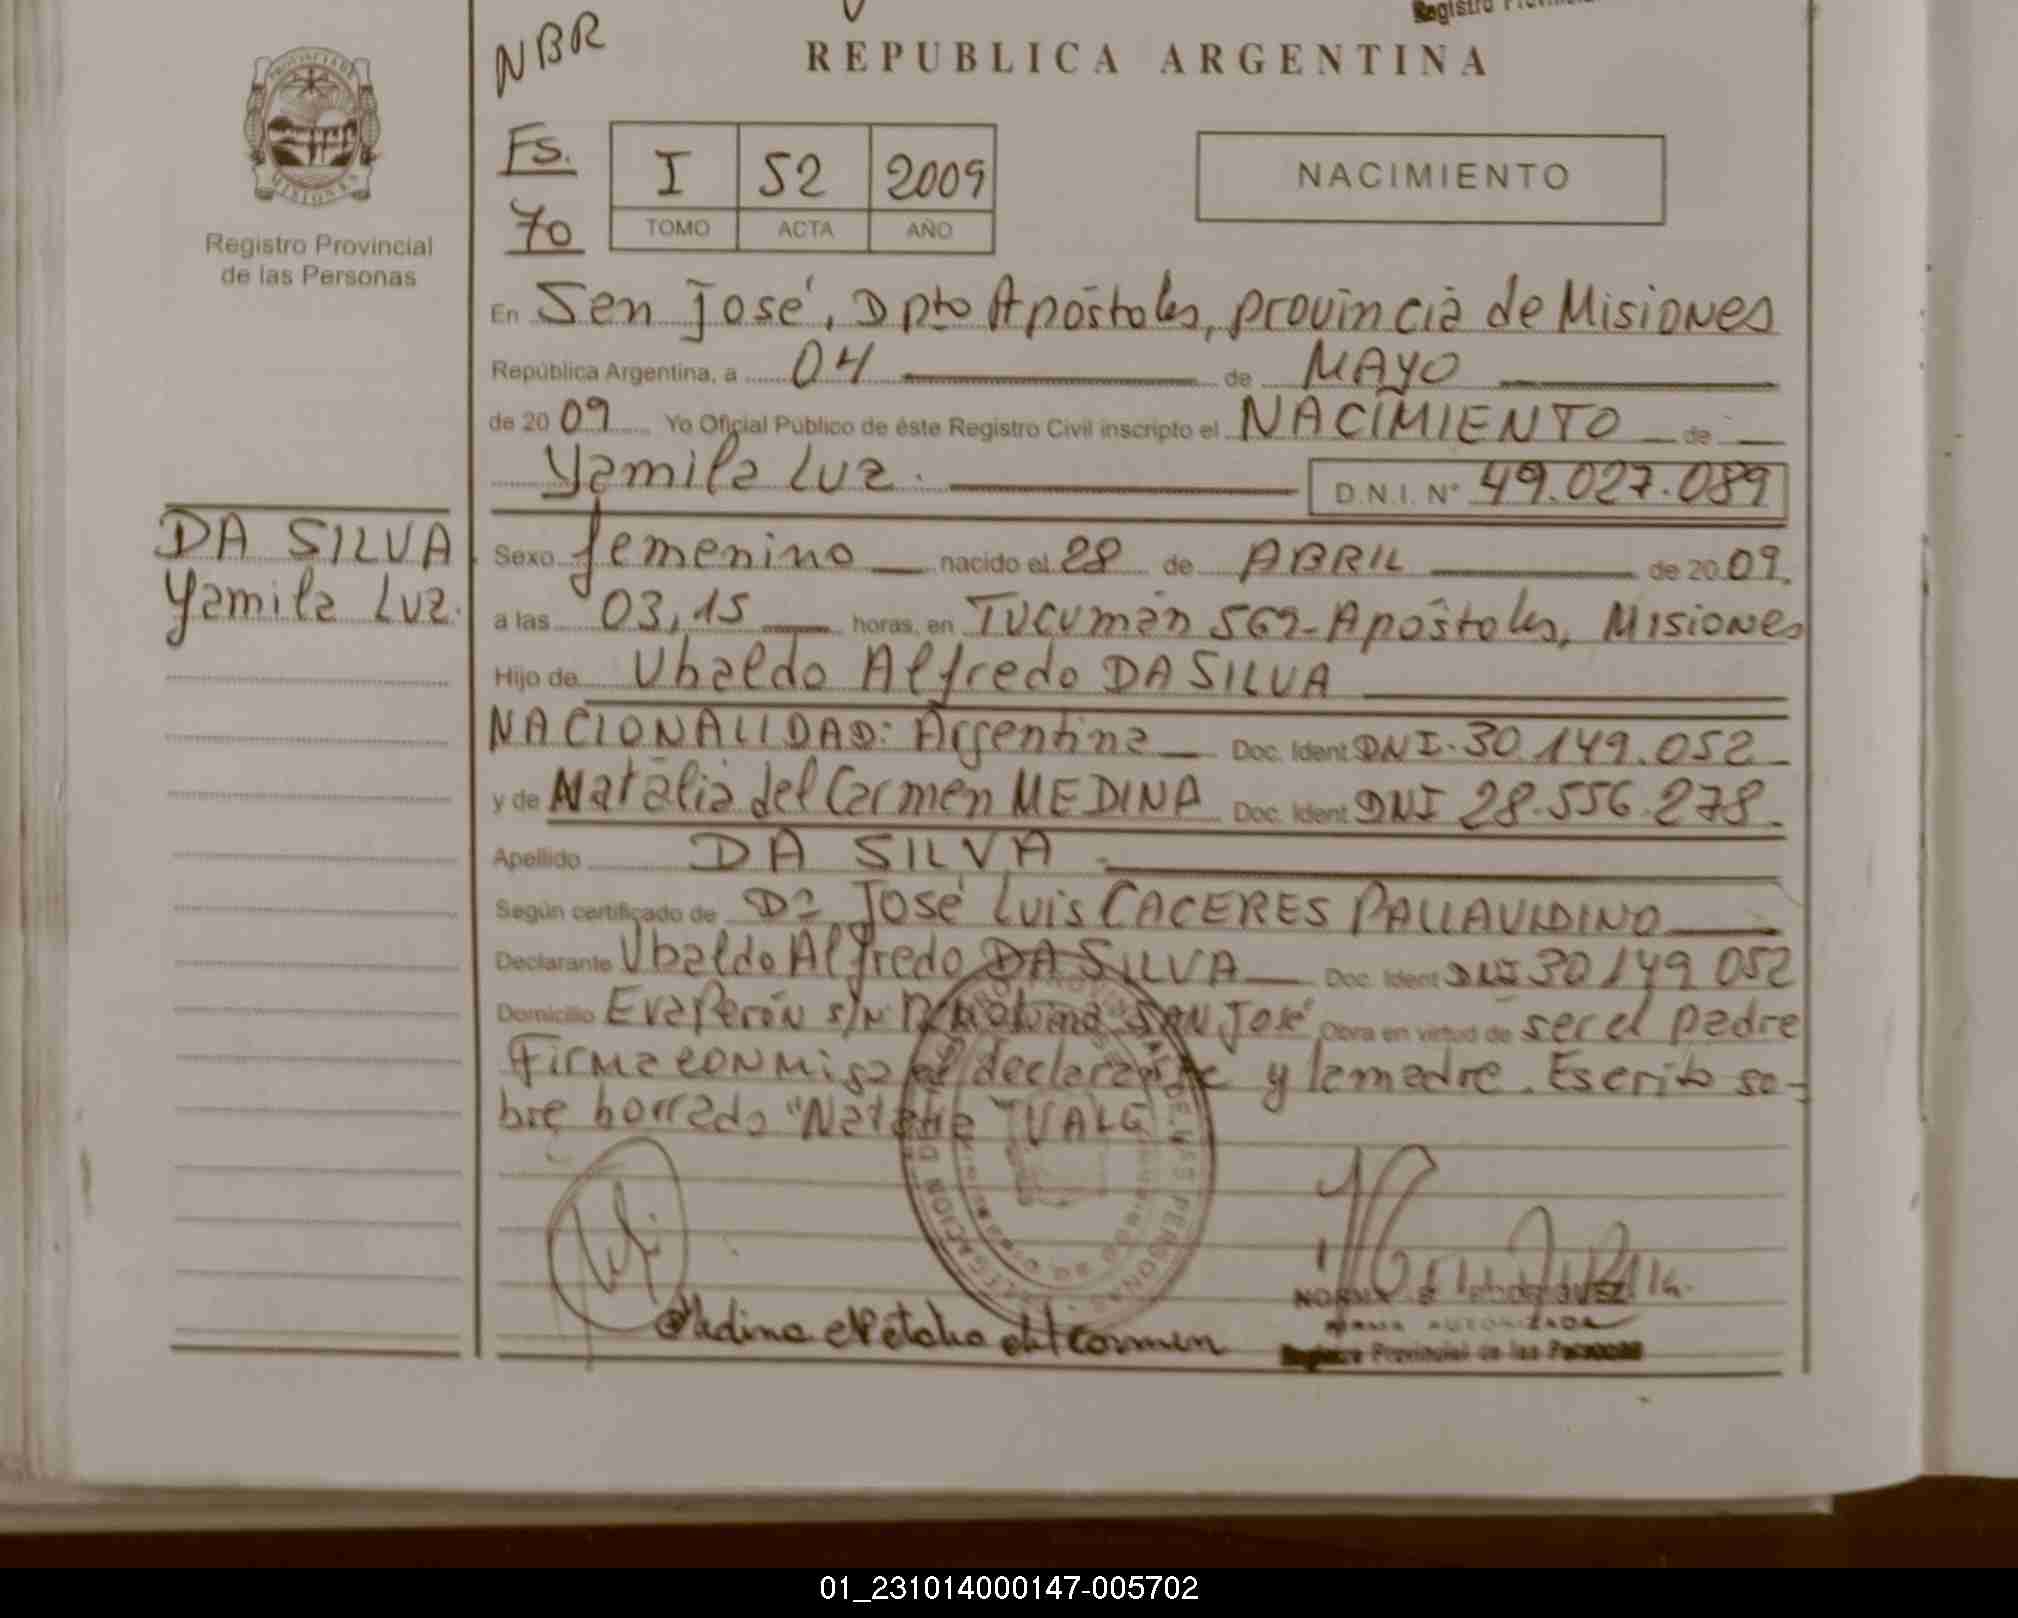 NBR
REPUBLICA ARGENTINA
PROVINCIA DE
MISIONES
Registro Provincial
de las Personas
Fs.
70
I 52 2009
TOMO ACTA AÑO
NACIMIENTO
En San José, Dpto Apóstoles, provincia de Misiones
República Argentina, a 04 de MAYO
de 2009 Yo Oficial Público de éste Registro Civil inscripto el NACIMIENTO de
Yamila Luz. D.N.I. N° 49.027.089
DA SILVA
Yamila Luz.
Sexo femenino nacido el 28 de ABRIL de 2009.
a las 03,15 horas, en Tucumán 569-Apóstoles, Misiones
Hijo de Ubaldo Alfredo DA SILVA
NACIONALIDAD: Argentina Doc. Ident DNI. 30.149.052
y de Natalia del Carmen MEDINA Doc. Ident DNI 28.556.278.
Apellido DA SILVA
Según certificado de Dr José Luis CACERES PALLAVIDINO
Declarante Ubaldo Alfredo DA SILVA Doc. Ident DNI 30149052
Domicilio Eva Perón s/n SAN José Obra en virtud de ser el padre
Firma conmigo el declarante y la madre. Escrito so-
bre borrado "Natalia" VALE
Medina Natalia del Carmen
Registro Provincial de las Personas
01_231014000147-005702